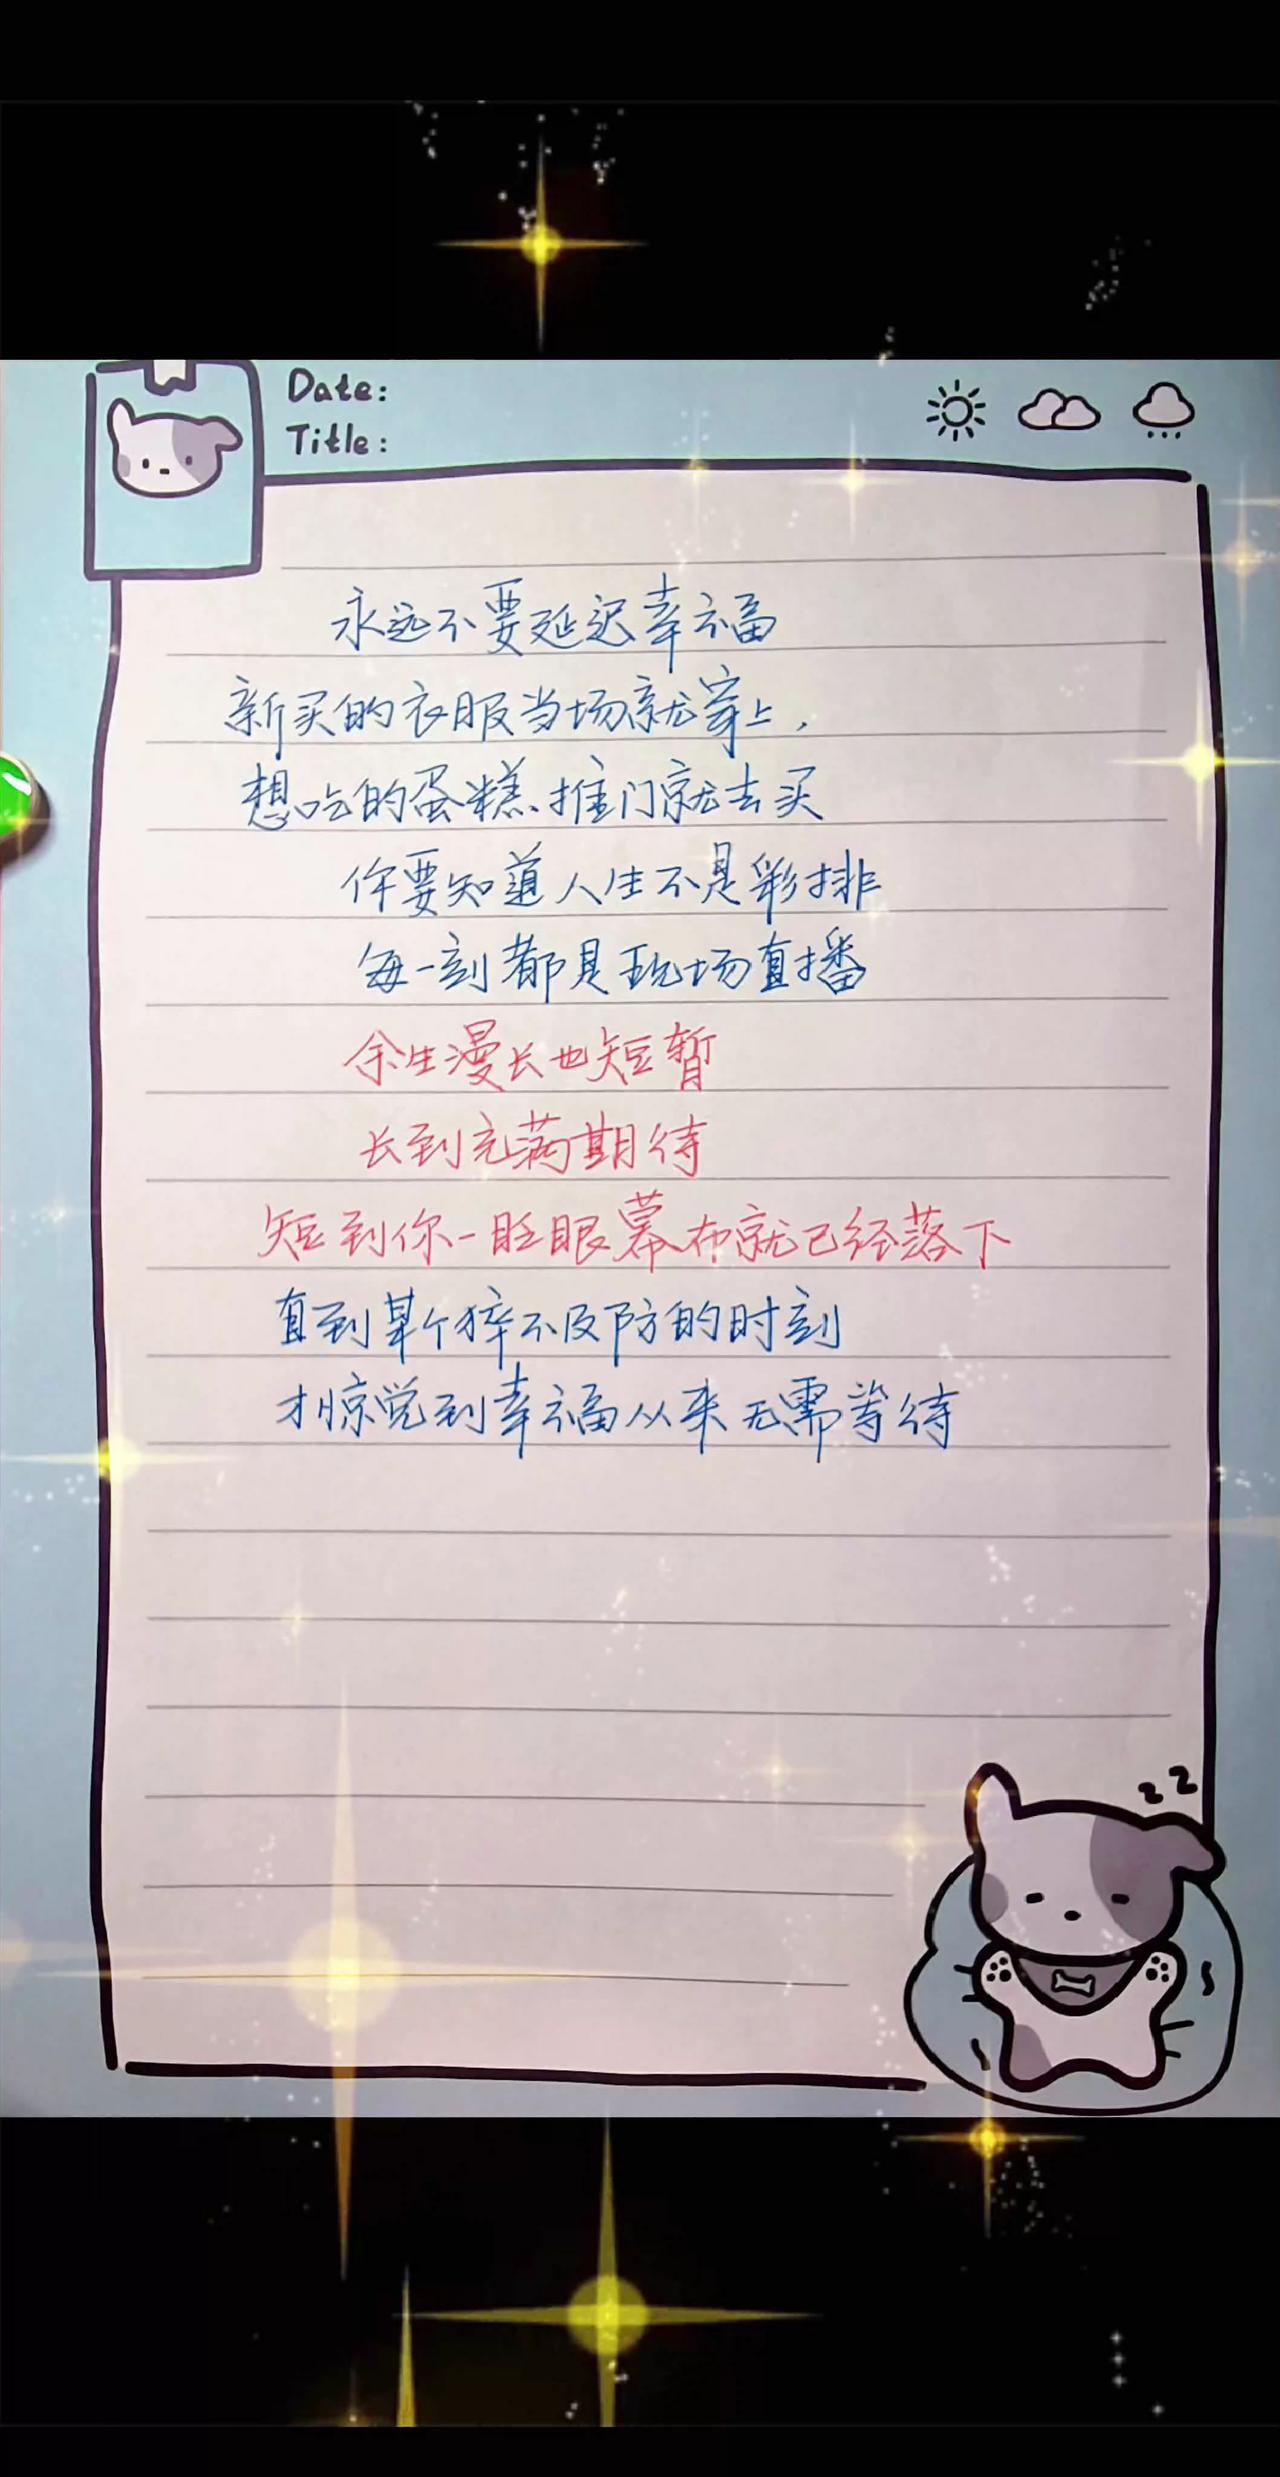 Date:
Title:
永远不要延迟幸福
新买的衣服当场就穿上，
想吃的蛋糕、推门就去买
你要知道人生不是彩排
每一刻都是现场直播
余生漫长也短暂
长到充满期待
短到你一眨眼幕布就已经落下
直到某个猝不及防的时刻
才惊觉到幸福从来无需等待
zz